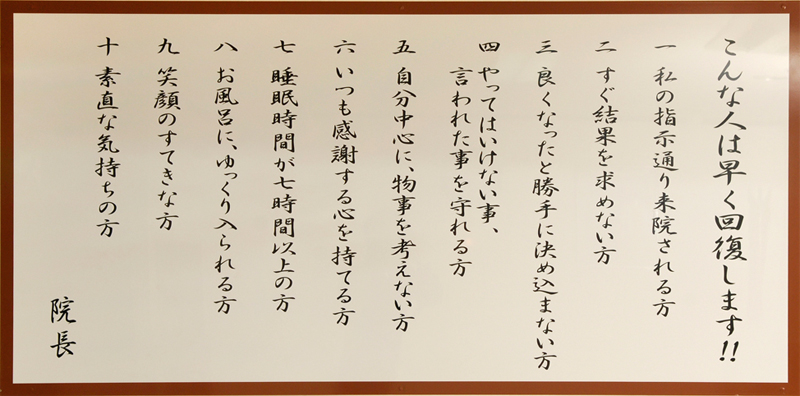 こんな人は早く回復します!!
一 私の指示通り来院される方
二 すぐ結果を求めない方
三 良くなったと勝手に決め込まない方
四 やってはいけない事、
言われた事を守れる方
五 自分中心に、物事を考えない方
六 いつも感謝する心を持てる方
七 睡眠時間が七時間以上の方
八 お風呂に、ゆっくり入られる方
九 笑顔のすてきな方
十 素直な気持ちの方
院長